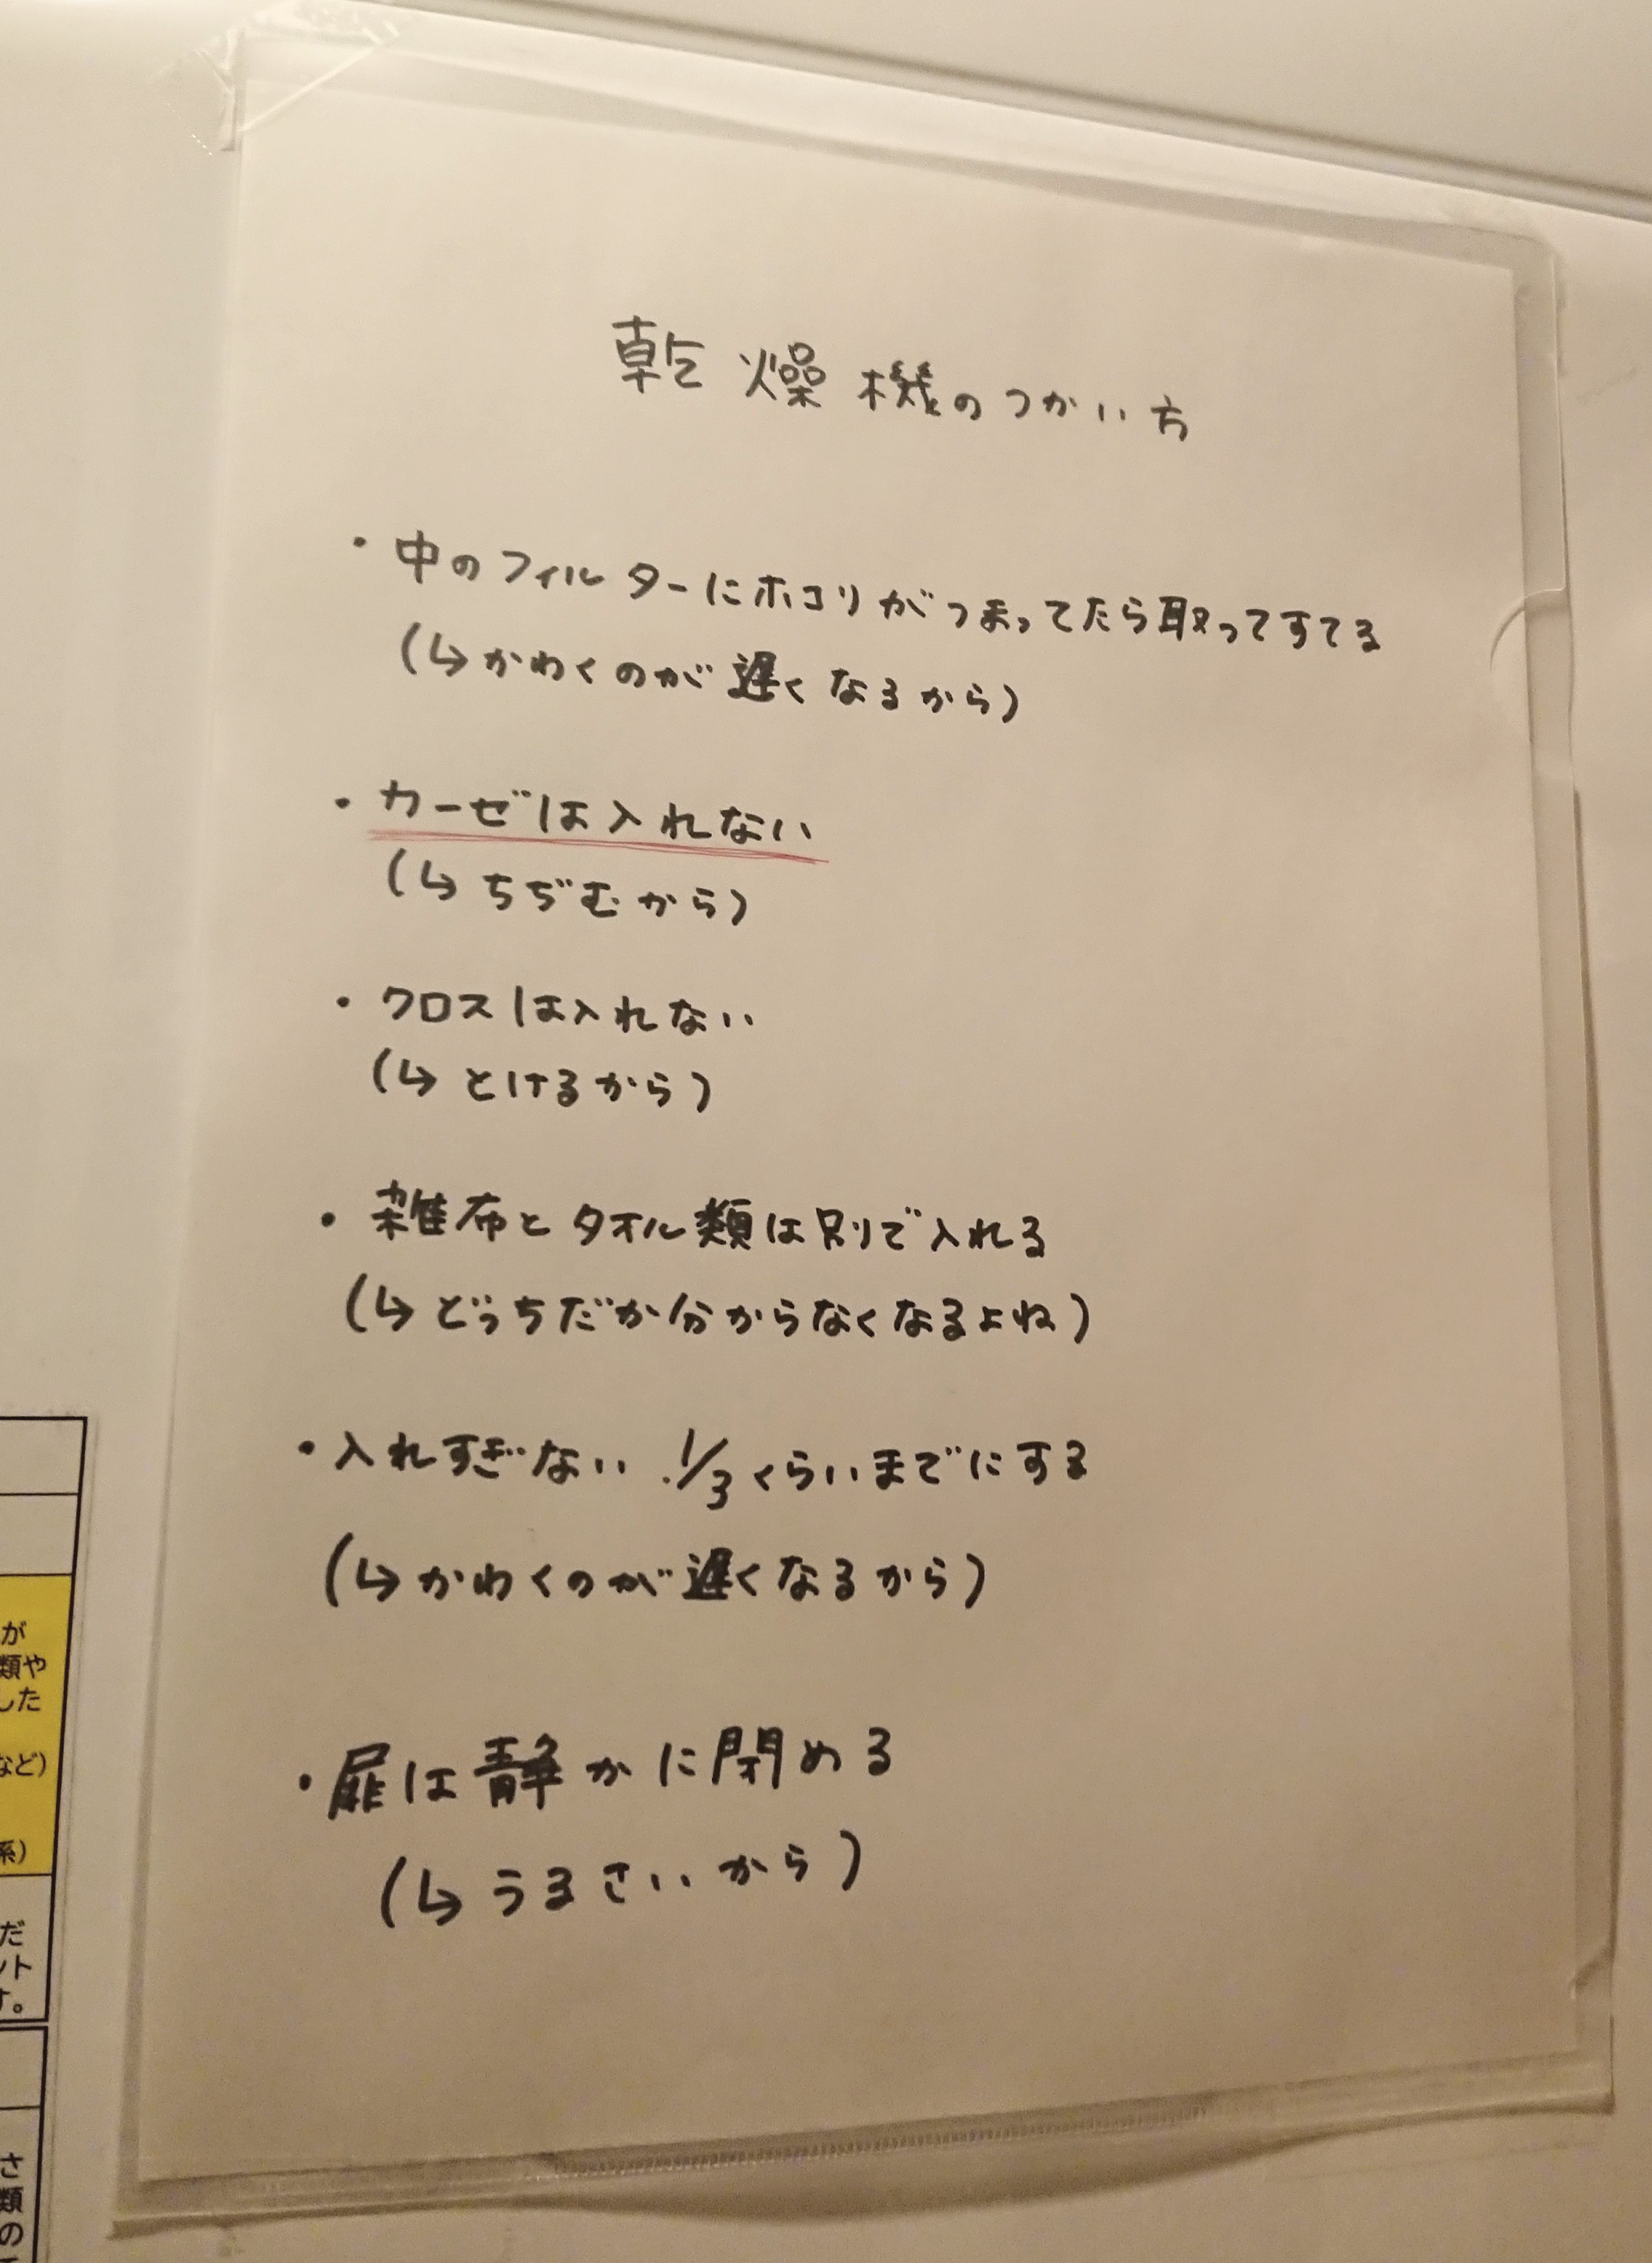 乾燥機のつかい方
・中のフィルターにホコリがつまってたら取ってすてる
(↳かわくのが遅くなるから)
・ガーゼは入れない
(↳ちぢむから)
・クロスは入れない
(↳とけるから)
・雑布とタオル類は別で入れる
(↳どっちだか分からなくなるよね)
・入れすぎない.1/3くらいまでにする
(↳かわくのが遅くなるから)
・扉は静かに閉める
(↳うるさいから)
が
類や
した
など)
系)
だ
ント
す。
さ
類
の